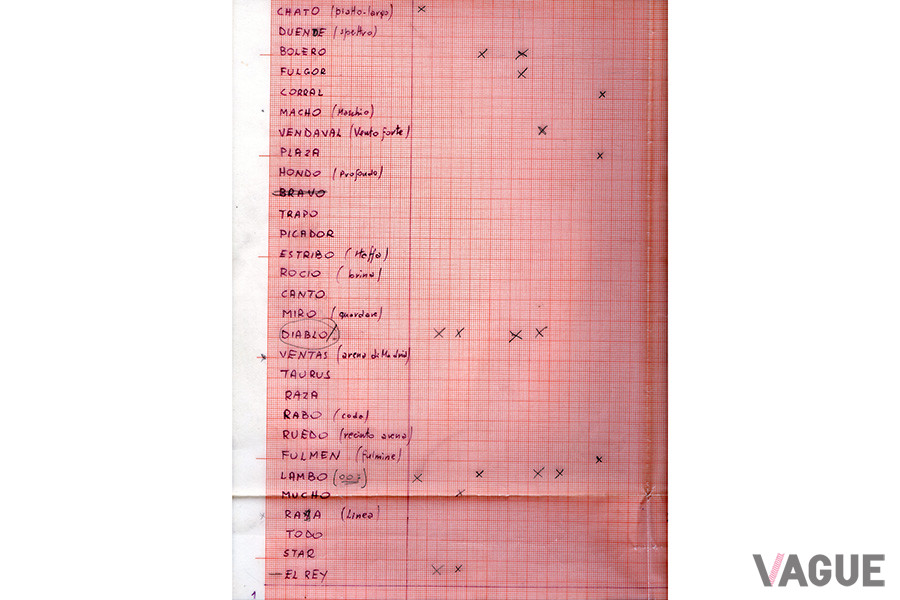 CHATO (piatto-largo) x
DUENDE (spettro)
BOLERO x x
FULGOR x
CORRAL x
MACHO (Maschio)
VENDAVAL (Vento forte) x
PLAZA x
HONDO (Profondo)
BRAVO
TRAPO
PICADOR
ESTRIBO (staffa)
ROCIO (brina)
CANTO
MIRO (guardare)
DIABLO x x x x
VENTAS (arena di Madrid)
TAURUS
RAZA
RABO (coda)
RUEDO (recinto arena)
FULMEN (fulmine) x
LAMBO x x x x
MUCHO x
RAYA (Linea)
TODO
STAR
EL REY x x
1
VAGUE